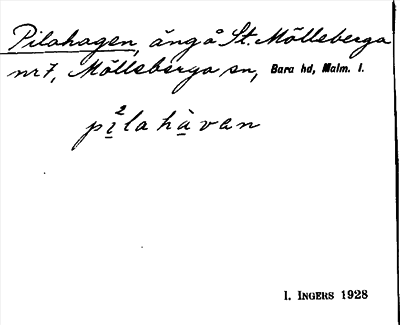 Pilahagen, äng å St. Mölleberga
nr 7, Mölleberga sn, Bara hd, Malm. l.
pi²lahàvan
I. INGERS 1928